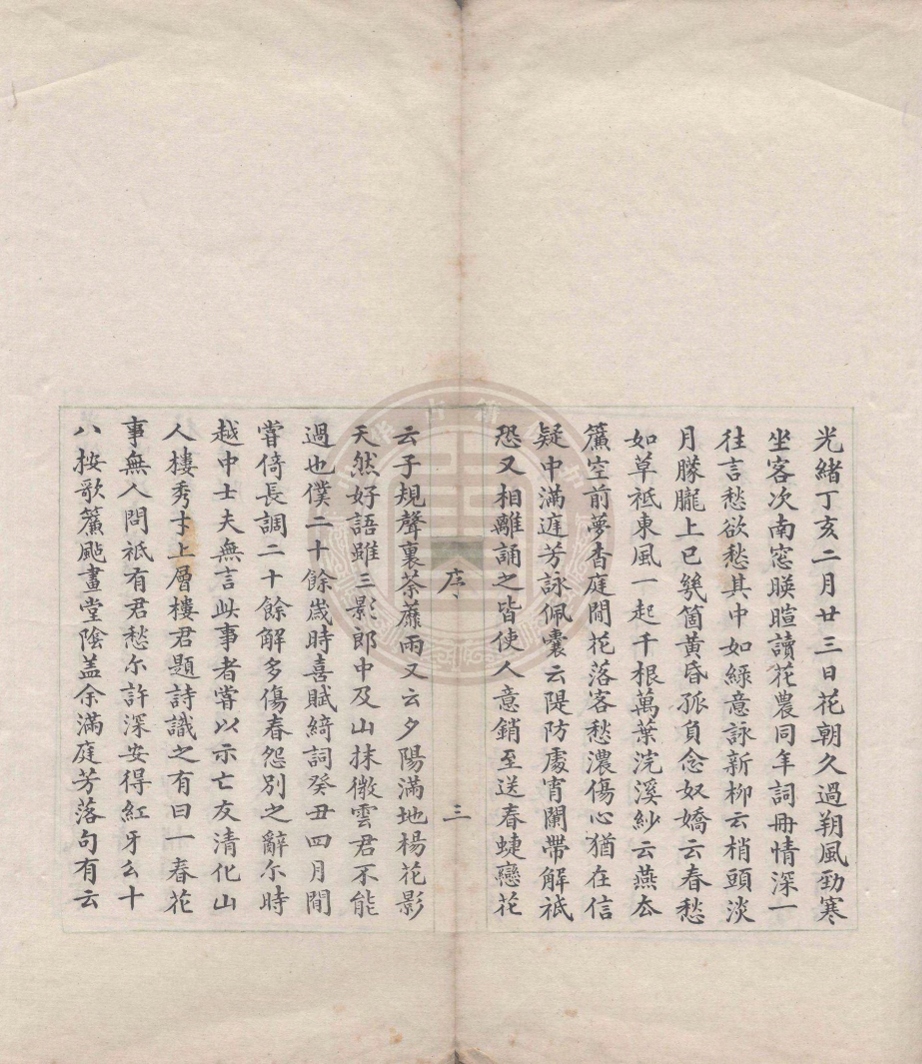 光緒丁亥二月廿三日花朝久過朔風勁寒
坐客次南窓暎暄讀花農同年詞冊情深一
往言愁欲愁其中如綠意詠新柳云梢頭淡
月朦朧上已幾箇黃昏孤負念奴嬌云春愁
如草祗東風一起千根萬葉浣溪紗云燕厺
簾空前夢香庭間花落客愁濃傷心猶在信
疑中滿庭芳詠佩囊云隄防處宵闌帶解祇
恐又相離誦之皆使人意銷至送春蜨戀花
序
三
云子規聲裏荼蘼雨又云夕陽滿地楊花影
天然好語雖三影郎中及山抹微雲君不能
過也僕二十餘歲時喜賦綺詞癸丑四月間
嘗倚長調二十餘解多傷春怨別之辭尓時
越中士夫無言此事者嘗以示亡友清化山
人樓秀才上層樓君題詩識之有曰一春花
事無人問祇有君愁尓許深安得紅牙么十
八按歌簾颭畫堂陰盖余滿庭芳落句有云